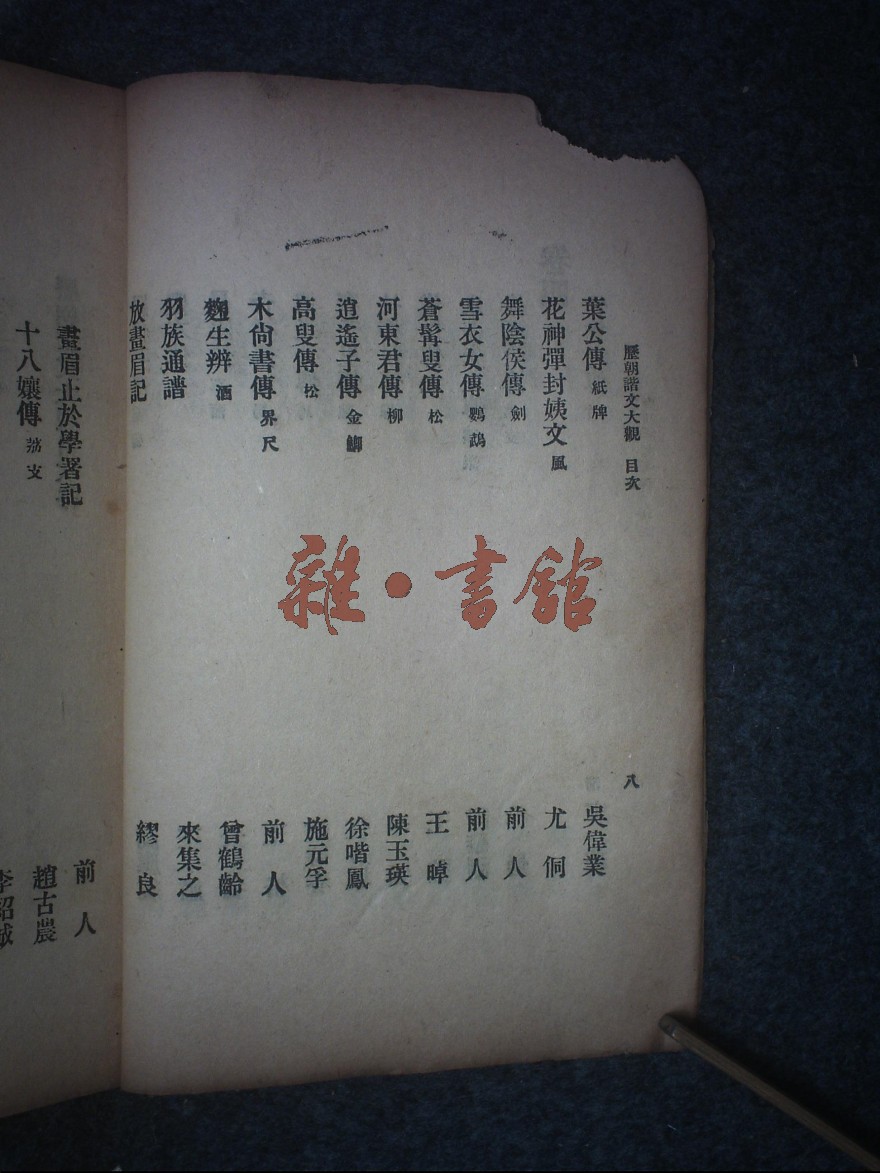 歷朝諧文大觀 目次 八
葉公傳 紙牌 吳偉業
花神彈封姨文 風 尤侗
舞陰侯傳 劍 前人
雪衣女傳 鸚鵡 前人
蒼髯叟傳 松 王晫
河東君傳 柳 陳玉瑛
逍遙子傳 金鯽 徐喈鳳
高叟傳 松 施元孚
木尙書傳 界尺 前人
麴生辨 酒 曾鶴齡
羽族通譜 來集之
放畫眉記 繆良
畫眉止於學署記 前人
十八孃傳 荔支 趙古農
李紹
雜·書館